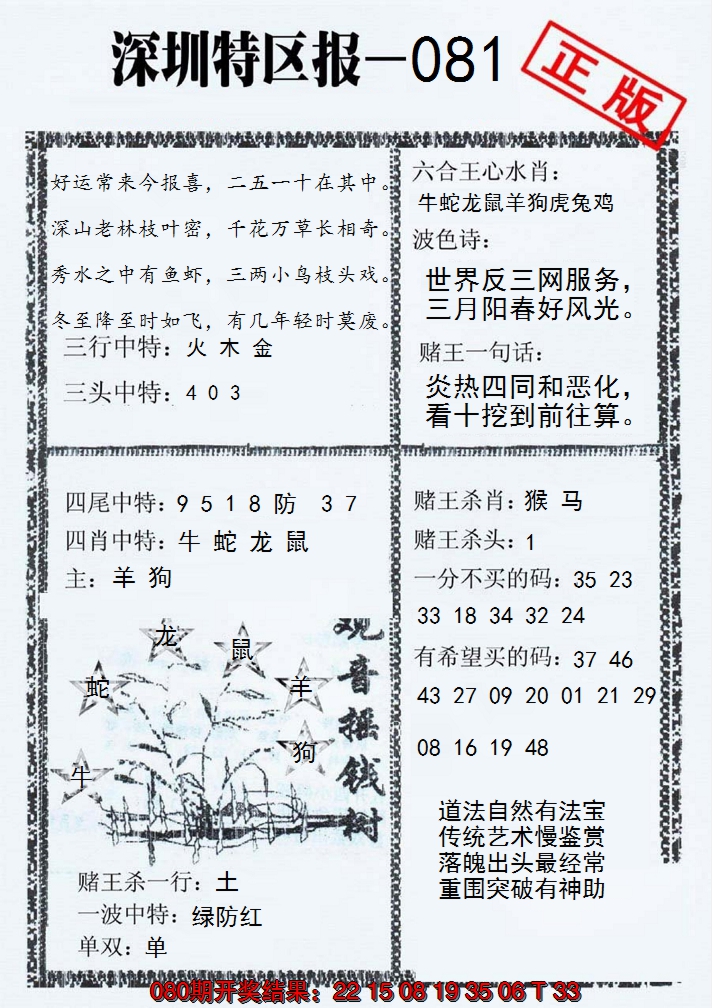 深圳特区报—081
正版
好运常来今报喜，二五一十在其中。
深山老林枝叶密，千花万草长相奇。
秀水之中有鱼虾，三两小鸟枝头戏。
冬至降至时如飞，有几年轻时莫废。
三行中特：火 木 金
三头中特：4 0 3
六合王心水肖：
牛蛇龙鼠羊狗虎兔鸡
波色诗：
世界反三网服务，
三月阳春好风光。
赌王一句话：
炎热四同和恶化，
看十挖到前往算。
四尾中特：9 5 1 8 防 3 7
四肖中特：牛 蛇 龙 鼠
主：羊 狗
观音摇钱树
龙
鼠
蛇
羊
狗
牛
赌王杀一行：土
一波中特：绿防红
单双：单
赌王杀肖：猴 马
赌王杀头：1
一分不买的码：35 23
33 18 34 32 24
有希望买的码：37 46
43 27 09 20 01 21 29
08 16 19 48
道法自然有法宝
传统艺术慢鉴赏
落魄出头最经常
重围突破有神助
080期开奖结果：22 15 08 19 35 06 T 33